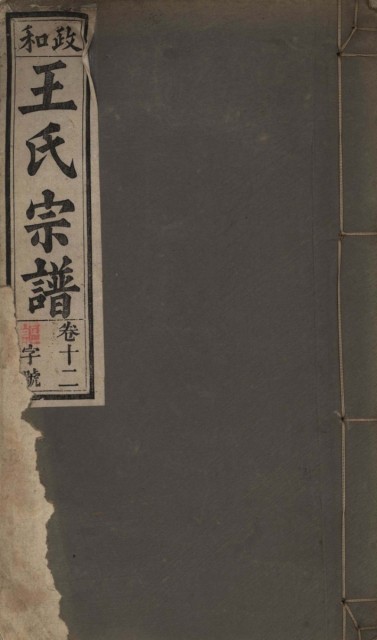 政和
王氏宗譜
卷十二
字號